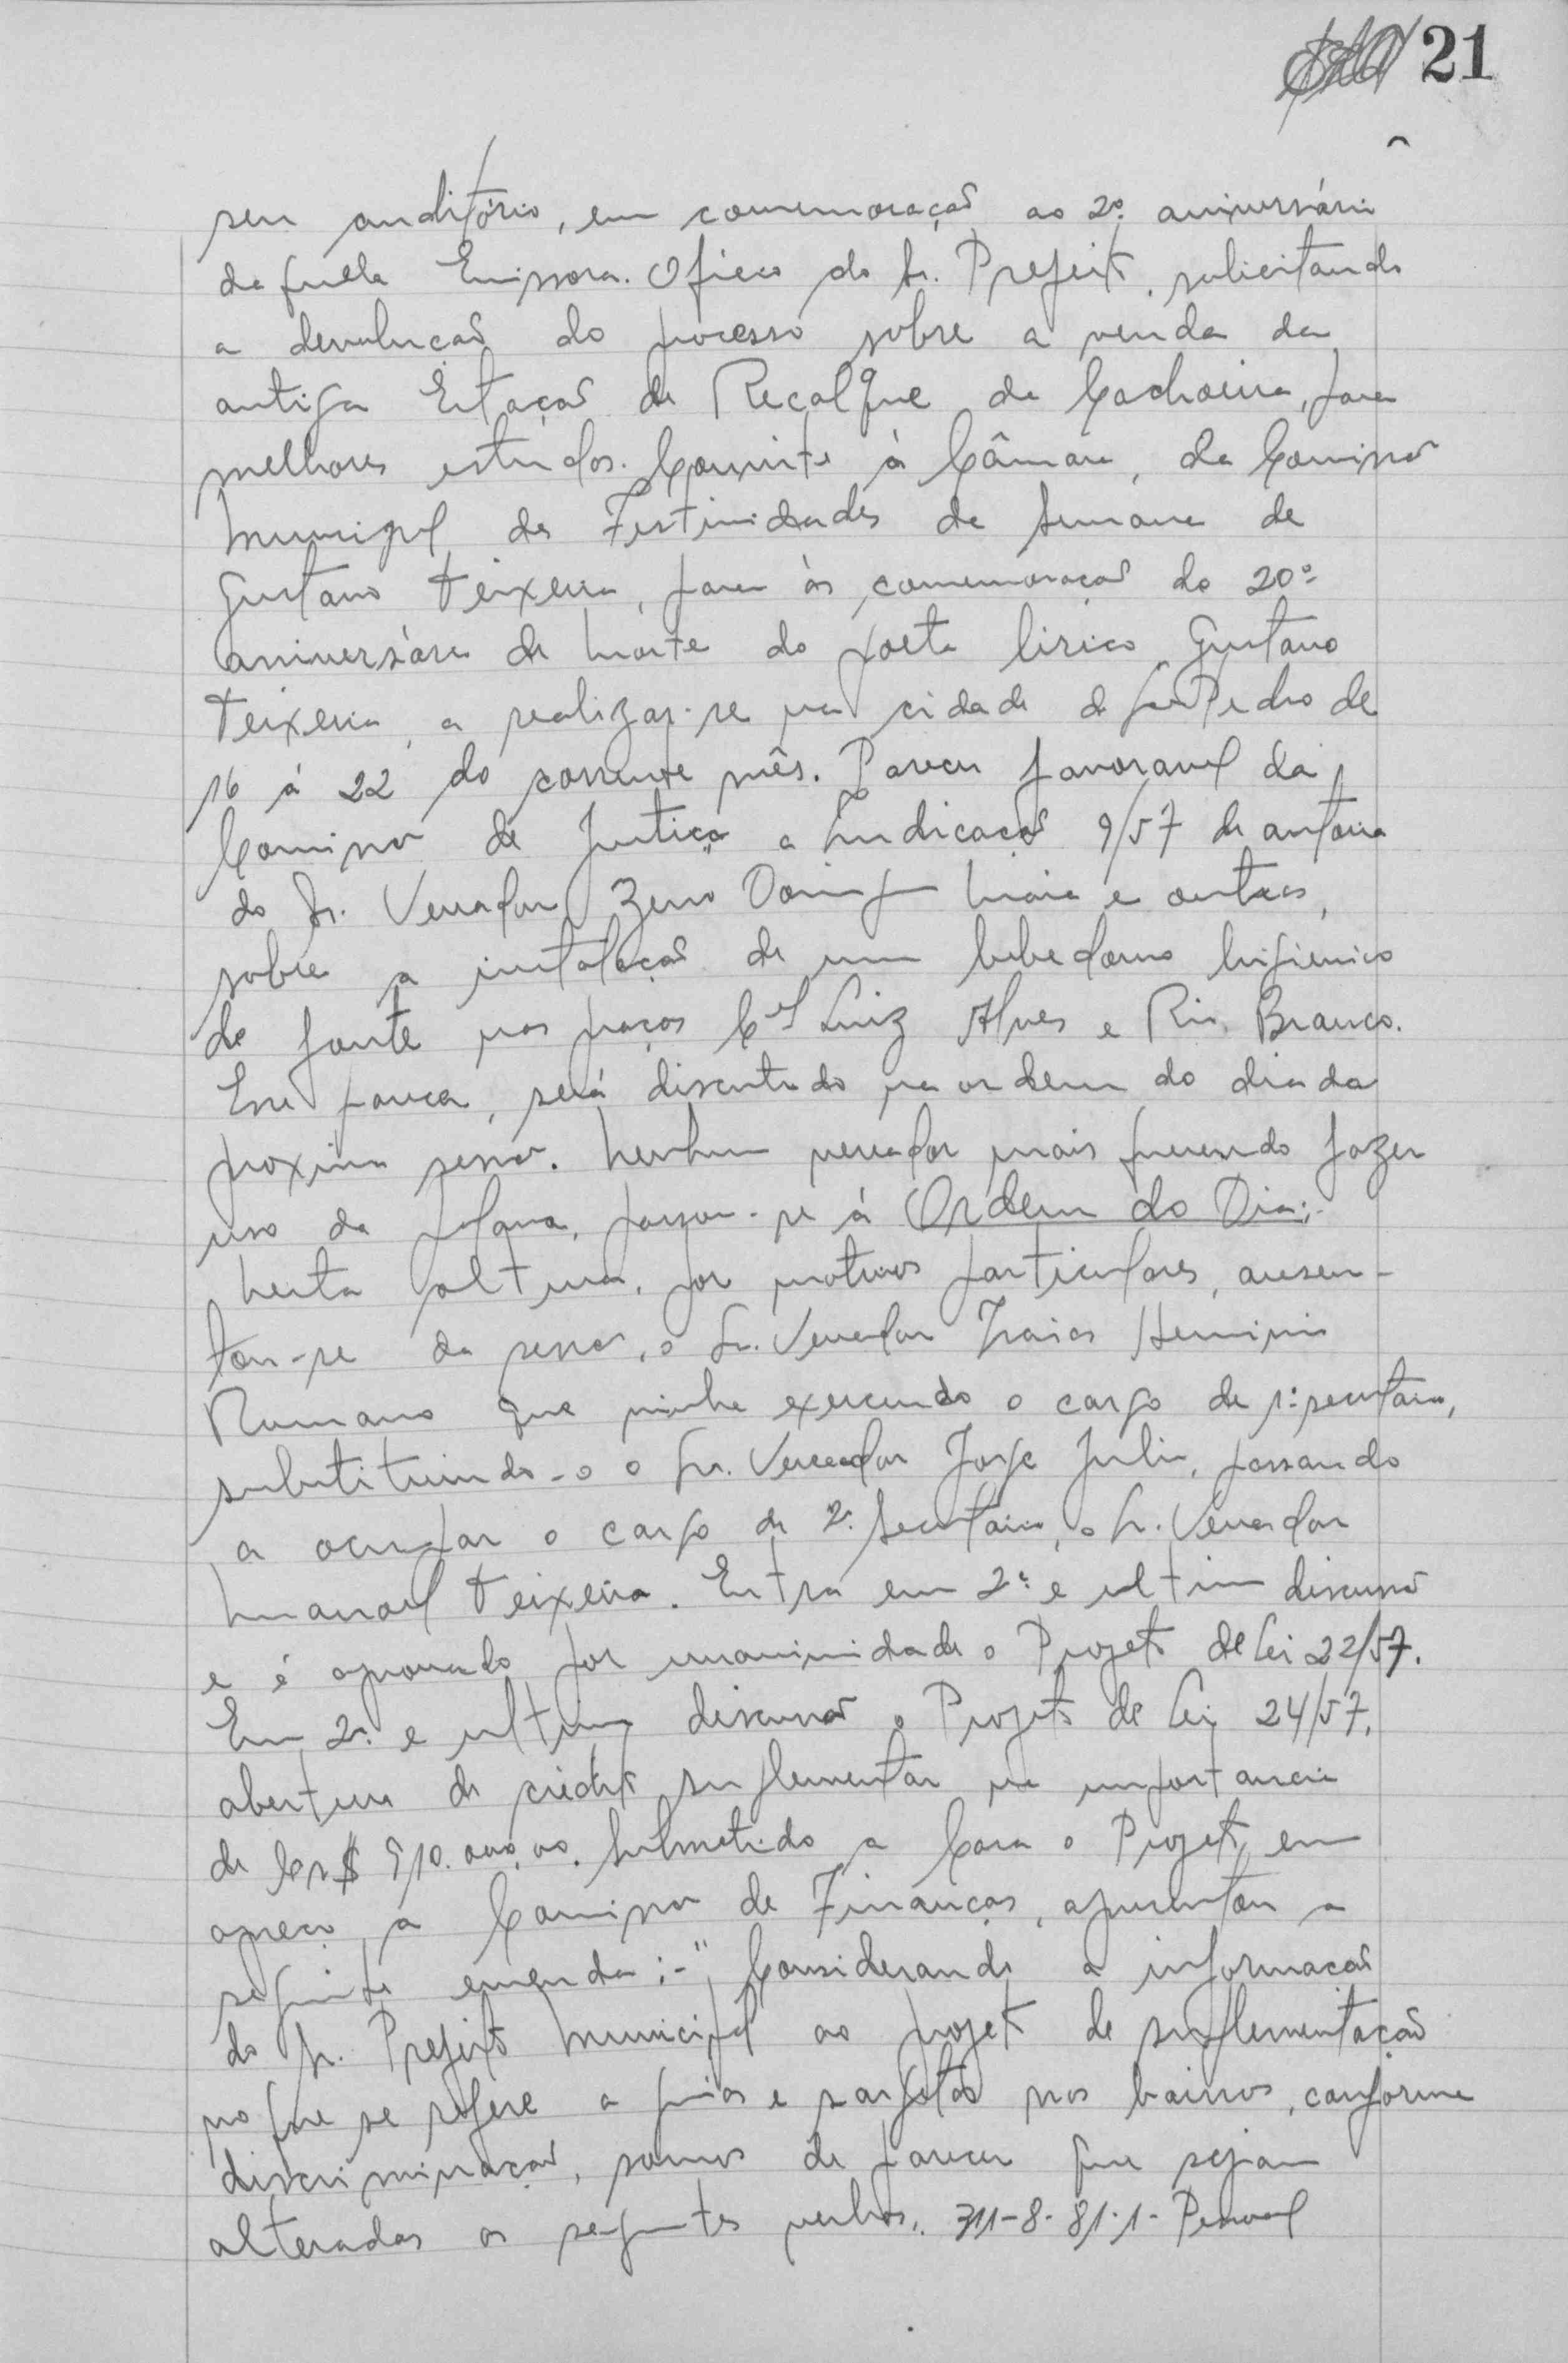 21
seu auditório, em comemoração ao 2º aniversário
daquela Emissora. Oficio do Sr. Prefeito, solicitando
a devolucão do processo sobre a venda da
antiga Estação de Recalque da Cachoeira, para
melhores estudos. Convite à Câmara, da Comissão
Municipal de Festividades da Semana de
Gustavo Teixeira, para às comemoração do 20º
aniversário da Morte do poeta lirico Gustavo
Teixeira, a realizar-se na cidade de São Pedro de
16 à 22 do corrente mês. Parecer favoravel da
Comissão de Justiça a Indicação 9/57 de autoria
do Sr. Vereador Zeno Maia e outros,
sobre a instalação de um bebedouro higienico
de fonte nas praças Cel Luiz Alves e Rio Branco.
Esse parecer, será discutido na ordem do dia da
proxima sessão. Nenhum vereador mais querendo fazer
uso da palavra, passou-se à Ordem do Dia:-
Nesta altura, por motivos particulares, ausen-
tou-se da sessão, o Sr. Vereador Isaias Herminio
Romano que vinha exercendo o cargo de 1º secretario,
substituindo-o o Sr. Vereador Jorge Julio, passando
a ocupar o cargo de 2º Secretario, o Sr. Vereador
Manoel Teixeira. Entra em 2ª e ultima discussão
e é aprovado por unanimidade o Projeto de Lei 22/57.
Em 2ª e ultima discussão o Projeto de Lei 24/57,
abertura de crédito suplementar na importancia
de Cr$ 910.000,00. Submetido a Casa o Projeto em
apreço, a Comissão de Finanças, apresentou a
seguinte emenda:-" Considerando a informacão
do Sr. Prefeito Municipal ao projeto de suplementação
no que se refere a guias e sarjetas nos bairros, conforme
discriminação, somos de parecer que sejam
alteradas as seguintes verbas. 311-8-81-1- Pessoal